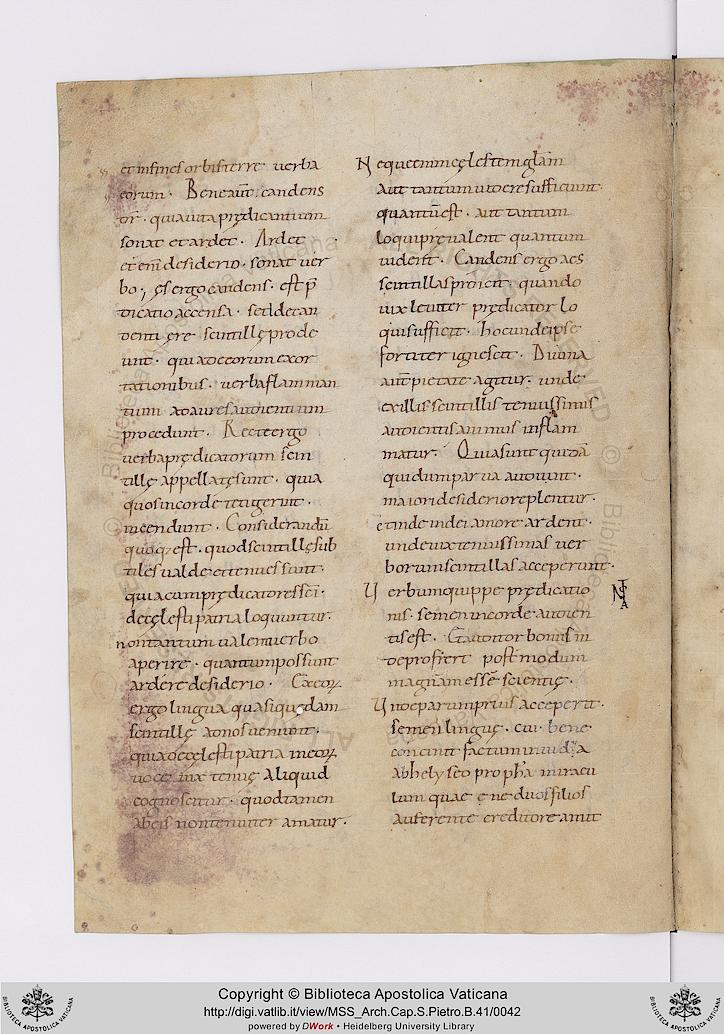 et in fines orbis terre verba
eorum · Bene aut̄ candens
dr̄ · quia vita predicantium
sonat et ardet · Ardet
et em̄ desiderio · sonat ver
bo · ęs ergo candens · est p̄
dicatio accensa · sed de can
denti ęre scintillę prode
unt · quia de eorum exor
tationibus · verba flamman
tium ad aures audientium
procedunt · Recte ergo
verba prędicatorum scin
tillę appellatę sunt · quia
quos in corde tetigerint ·
incendunt · Considerandū
quoq; est · quod scintillę sub
tiles valde et tenues sunt ·
quia cum prędicatores scī ·
de cęlesti patria loquuntur ·
non tantum valent verbo
aperire · quantum possunt
ardere desiderio · Ex eoꝝ
ergo lingua quasi quędam
scintillę ad nos veniunt ·
quia de cęlesti patria in eoꝝ
voce vix tenue aliquid
cognoscitur · quod tamen
ab eis non tenuiter amatur ·
Neque enim cęlestem glām
aut tantum videre sufficiunt ·
quantū est · aut tantum
loqui prevalent quantum
viderit · Candens ergo aes
scintillas proicit · quando
vix leviter prędicator lo
qui sufficit · hoc unde ipse
fortiter ignescit · Divina
aut̄ pietate agitur · unde
ex illis scintillis tenuissimis
audientis animus inflam
matur · Quia sunt quidā
qui dum parva audiunt ·
maiori desiderio replentur ·
et inde in dei amore ardent ·
unde vix tenuissimas ver
borum scintillas acceperunt ·
Verbum quippe prędicatio
nis · semen in corde audien
tis est · Et auditor bonus in
de profert postmodum
magnam esse scientię ·
Unde parum prius acceperit ·
semen linguę · cui bene
concinit factum
ab helyseo propha miracu
lum quae ne duos filios
auferente creditore amit
Copyright © Biblioteca Apostolica Vaticana
http://digi.vatlib.it/view/MSS_Arch.Cap.S.Pietro.B.41/0042
powered by DWork • Heidelberg University Library